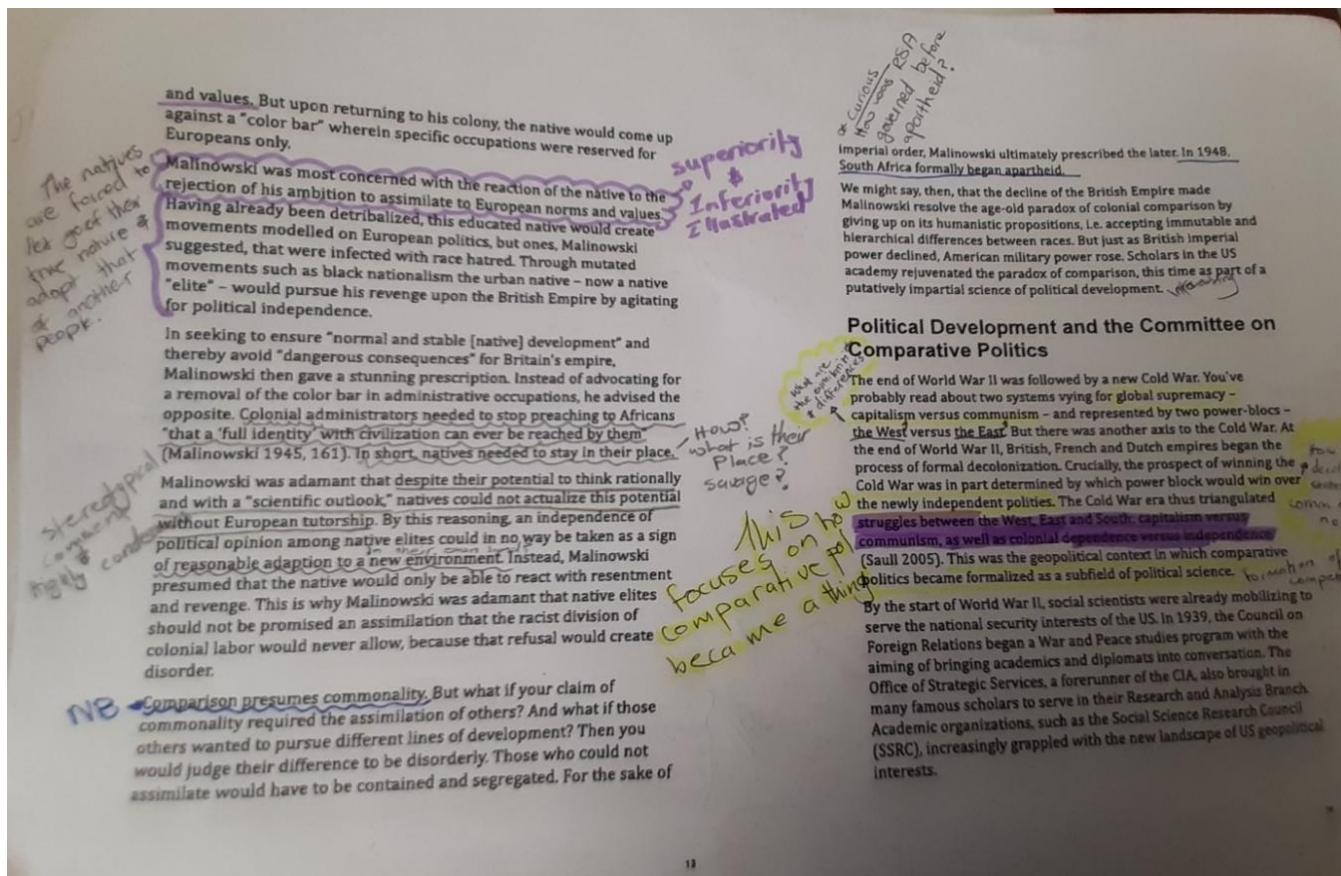 and values. But upon returning to his colony, the native would come up
against a "color bar" wherein specific occupations were reserved for
Europeans only.
Malinowski was most concerned with the reaction of the native to the
rejection of his ambition to assimilate to European norms and values.
Having already been detribalized, this educated native would create
movements modelled on European politics, but ones, Malinowski
suggested, that were infected with race hatred. Through mutated
movements such as black nationalism the urban native – now a native
"elite" – would pursue his revenge upon the British Empire by agitating
for political independence.
The natives
are forced to
let go of their
true nature &
adopt that
of another
people.
superiority
&
Inferiority
Illustrated
In seeking to ensure "normal and stable [native] development" and
thereby avoid "dangerous consequences" for Britain's empire,
Malinowski then gave a stunning prescription. Instead of advocating for
a removal of the color bar in administrative occupations, he advised the
opposite. Colonial administrators needed to stop preaching to Africans
"that a 'full identity' with civilization can ever be reached by them"
(Malinowski 1945, 161). In short, natives needed to stay in their place.
How?
what is their
Place?
savage?
Malinowski was adamant that despite their potential to think rationally
and with a "scientific outlook," natives could not actualize this potential
without European tutorship. By this reasoning, an independence of
political opinion among native elites could in no way be taken as a sign
in their own
of reasonable adaption to a new environment. Instead, Malinowski
presumed that the native would only be able to react with resentment
and revenge. This is why Malinowski was adamant that native elites
should not be promised an assimilation that the racist division of
colonial labor would never allow, because that refusal would create
disorder.
stereotypical
comment
&
highly
NB Comparison presumes commonality. But what if your claim of
commonality required the assimilation of others? And what if those
others wanted to pursue different lines of development? Then you
would judge their difference to be disorderly. Those who could not
assimilate would have to be contained and segregated. For the sake of
13
Curious
How was RSA
governed before
apartheid?
imperial order, Malinowski ultimately prescribed the later. In 1948,
South Africa formally began apartheid.
We might say, then, that the decline of the British Empire made
Malinowski resolve the age-old paradox of colonial comparison by
giving up on its humanistic propositions, i.e. accepting immutable and
hierarchical differences between races. But just as British imperial
power declined, American military power rose. Scholars in the US
academy rejuvenated the paradox of comparison, this time as part of a
putatively impartial science of political development.
Political Development and the Committee on
Comparative Politics
what are
the
differences
The end of World War II was followed by a new Cold War. You've
probably read about two systems vying for global supremacy –
capitalism versus communism – and represented by two power-blocs –
the West versus the East. But there was another axis to the Cold War. At
the end of World War II, British, French and Dutch empires began the
process of formal decolonization. Crucially, the prospect of winning the
Cold War was in part determined by which power block would win over
the newly independent polities. The Cold War era thus triangulated
struggles between the West, East and South: capitalism versus
communism, as well as colonial dependence versus independence
(Saull 2005). This was the geopolitical context in which comparative
politics became formalized as a subfield of political science.
formation of
This
focuses on how
comparative pol
became a thing
By the start of World War II, social scientists were already mobilizing to
serve the national security interests of the US. In 1939, the Council on
Foreign Relations began a War and Peace studies program with the
aiming of bringing academics and diplomats into conversation. The
Office of Strategic Services, a forerunner of the CIA, also brought in
many famous scholars to serve in their Research and Analysis Branch.
Academic organizations, such as the Social Science Research Council
(SSRC), increasingly grappled with the new landscape of US geopolitical
interests.